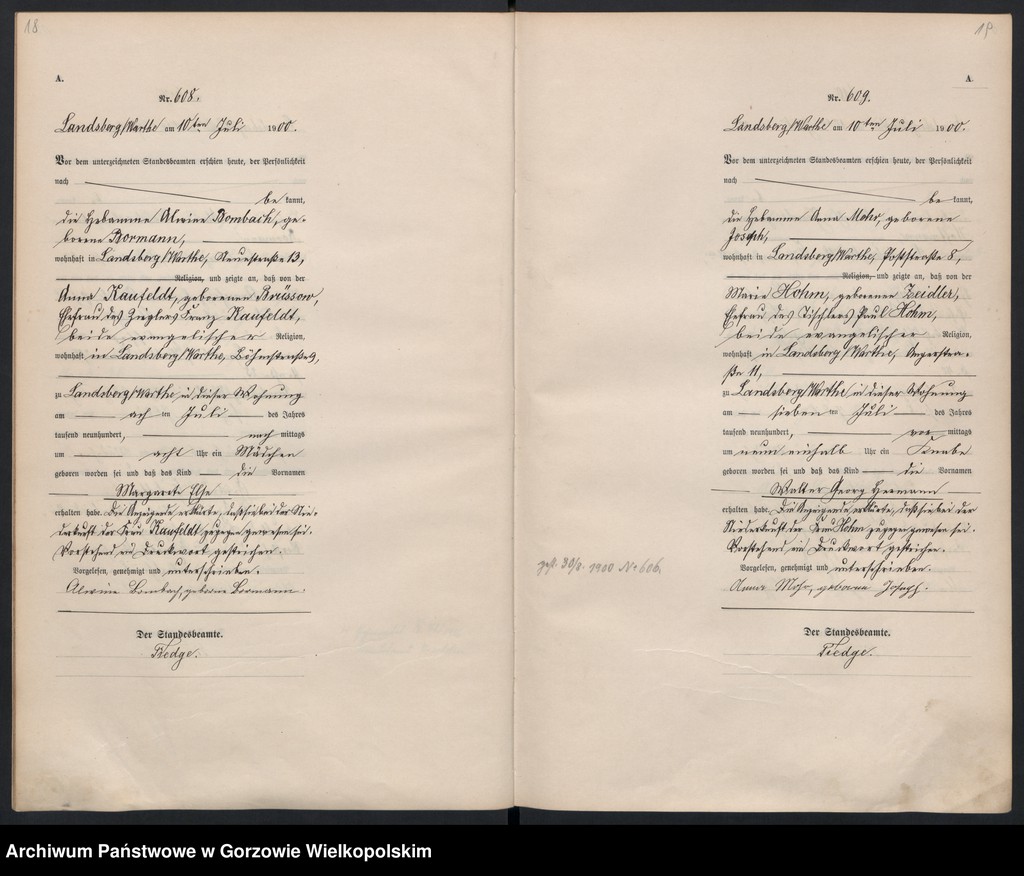 18
A.
Nr. 608.
Landsberg/Warthe am 10ten Juli 1900.
Vor dem unterzeichneten Standesbeamten erschien heute, der Persönlichkeit
nach
be kannt,
die Hebamme Alwine Bombach, ge-
borene Bormann,
wohnhaft in Landsberg/Warthe, Neuestraße 13,
Religion, und zeigte an, daß von der
Anna Kaufeldt, geborenen Brüssow,
Ehefrau des Zieglers Franz Kaufeldt,
beide evangelischer Religion,
wohnhaft in Landsberg/Warthe, Böhmstraße 9,
zu Landsberg/Warthe in dieser Wohnung
am ach ten Juli des Jahres
tausend neunhundert, nach mittags
um acht Uhr ein Mädchen
geboren worden sei und daß das Kind die Vornamen
Margarete Else
erhalten habe. Die Anzeigende erklärte, daß sie bei der Nie-
derkunft der Frau Kaufeldt zugegen gewesen sei.
Vorstehend ein Druckwort gestrichen.
Vorgelesen, genehmigt und unterschrieben.
Alwine Bombach, geborene Bormann.
Der Standesbeamte.
Fredge.
19
A.
Nr. 609.
Landsberg/Warthe am 10ten Juli 1900.
Vor dem unterzeichneten Standesbeamten erschien heute, der Persönlichkeit
nach
be kannt,
die Hebamme Anna Mohr, geborene
Joseph,
wohnhaft in Landsberg/Warthe, Poststraße 8,
Religion, und zeigte an, daß von der
Marie Hohm, geborenen Zeidler,
Ehefrau des Tischlers Paul Hohm,
beide evangelischer Religion,
wohnhaft in Landsberg/Warthe, Angerstra-
ße 11,
zu Landsberg/Warthe in dieser Wohnung
am sieben ten Juli des Jahres
tausend neunhundert, vor mittags
um neun einhalb Uhr ein Knabe
geboren worden sei und daß das Kind die Vornamen
Walter Georg Hermann
erhalten habe. Die Anzeigende erklärte, daß sie bei der
Niederkunft der Frau Hohm zugegen gewesen sei.
Vorstehend ein Druckwort gestrichen.
Vorgelesen, genehmigt und unterschrieben.
Anna Mohr, geborene Joseph.
Der Standesbeamte.
Fredge.
gest. 30/8. 1900 No 606
Archiwum Państwowe w Gorzowie Wielkopolskim